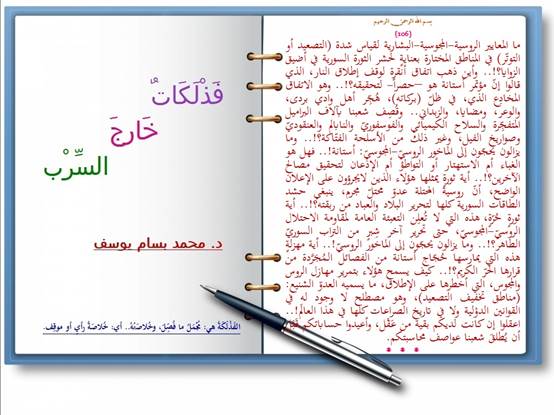 بسم الله الرحمن الرحيم
(106)
ما المعايير الروسية-المجوسية-البشارية لقياس شدة (التصعيد أو
التوتّر) في المناطق المختارة بعناية لحشر الثورة السورية في أضيق
الزوايا؟!.. وأين ذهب اتفاق أنقرة لوقف إطلاق النار، الذي
قالوا إنّ مؤتمر أستانة هو –حصراً– لتحقيقه؟!.. وهو الاتفاق
المخادع الذي، في ظلّ (بركاته)، هُجّر أهل وادي بردى،
والوعر، ومضايا، والزبداني.. وقُصِف شعبنا بآلاف البراميل
المتفجّرة والسلاح الكيميائي والفوسفوريّ والنابالم والعنقوديّ
وصواريخ الفيل، وغير ذلك من الأسلحة الفتّاكة؟!.. وما
يزالون يحجّون إلى الماخور الروسيّ-المجوسيّ: أستانة!.. فهل هو
الغباء أم الاستهتار أو التواطؤ أم الإذعان لتحقيق مصالح
الآخرين؟!.. أية ثورةٍ يمثلها هؤلاء الذين لايجرؤون على الإعلان
الواضح، أنّ روسية المحتلة عدوّ محتلّ مجرم، ينبغي حشد
الطاقات السورية كلها لتحرير البلاد والعباد من ربقته؟!.. أية
ثورةٍ حُرّة، هذه التي لا تُعلِن التعبئة العامة لمقاومة الاحتلال
الروسيّ-المجوسيّ، حتى تحرير آخر شبرٍ من التراب السوريّ
الطاهر؟!.. وما يزالون يحجون إلى الماخور الروسيّ!.. أية مهزلةٍ
هذه التي يمارسها حُجّاج أستانة من الفصائل المُجرّدة من
قرارها الحرّ الكريم؟!.. كيف يسمح هؤلاء بتمرير مهازل الروس
والمجوس، التي أخطرها على الإطلاق، ما يسميه العدوّ الشنيع:
(مناطق تخفيف التصعيد)، وهو مصطلح لا وجود له في
القوانين الدولية ولا في تاريخ الصراعات كلها في هذا العالم!..
اعقلوا إن كانت لديكم بقية من عَقْل، وأعيدوا حساباتكم قبل
أن يُطلق شعبنا عواصف محاسبتكم.
فَذْلَكَاتٌ
خَارِجَ
السِّرْبْ
د. محمد بسام يوسف
الفَذْلَكَةُ هي: مُجْمَلُ ما فُصِّلَ، وخُلاصَتُهُ.. أي: خُلاصَةُ رأيٍ أو موقِف.